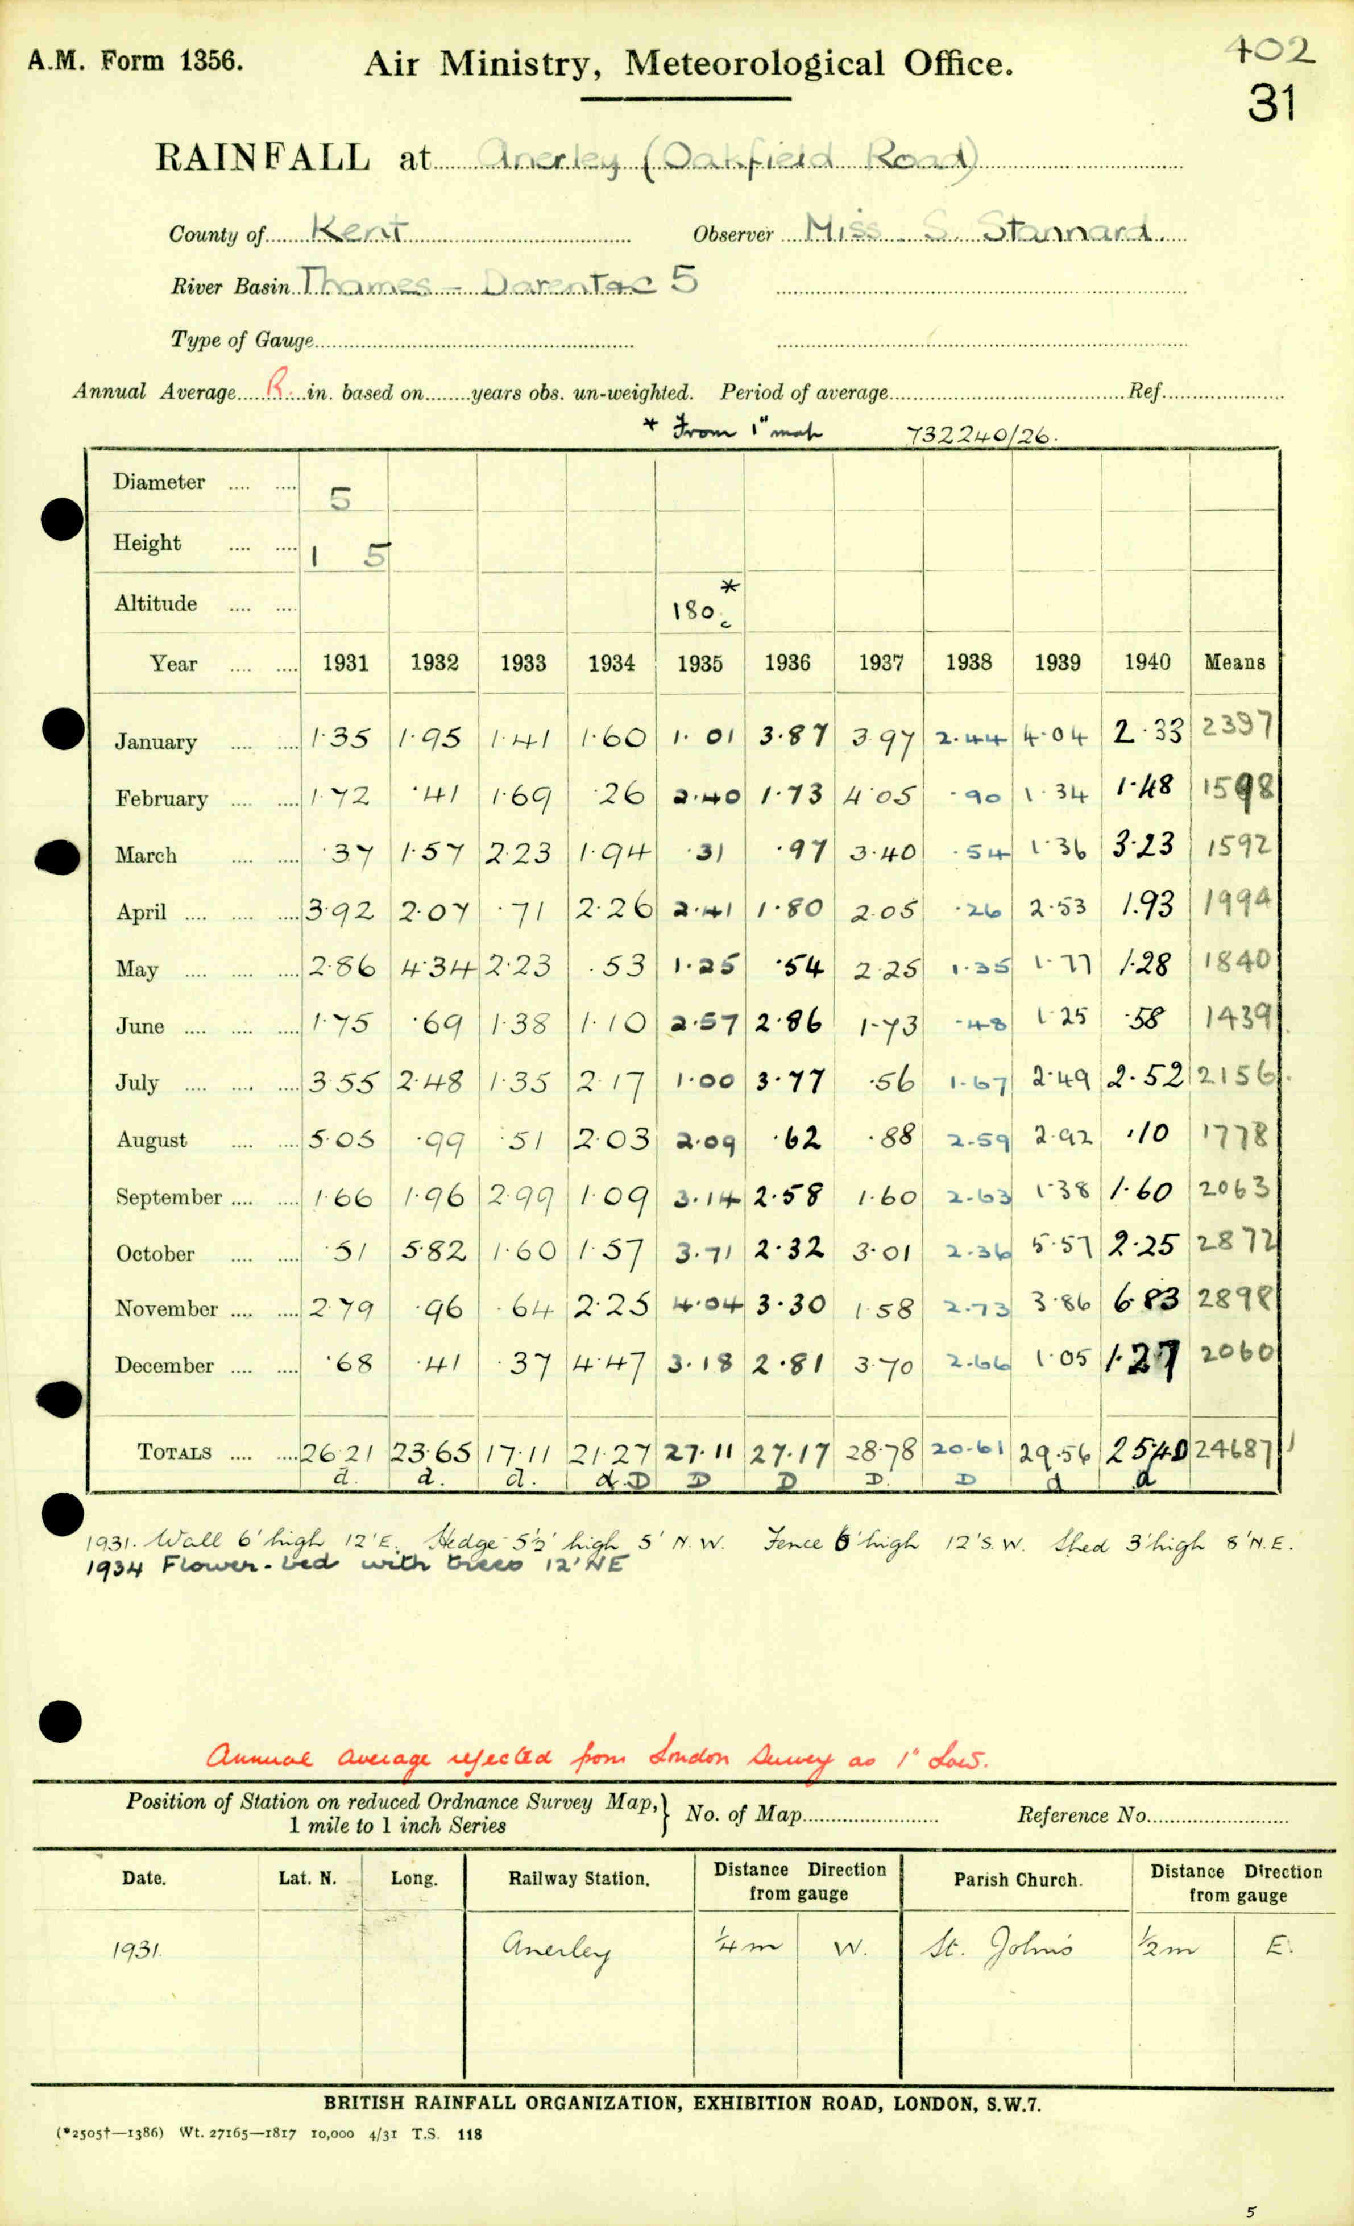 A.M. Form 1356.
Air Ministry, Meteorological Office.
402
31
RAINFALL at Anerley (Oakfield Road)
County of Kent Observer Miss S. Stannard
River Basin Thames - Darent &c 5
Type of Gauge
Annual Average R. in. based on years obs. un-weighted. Period of average Ref.
* From 1" map 732240/26.
Diameter 5
Height 1 5
Altitude 180c *
Year 1931 1932 1933 1934 1935 1936 1937 1938 1939 1940 Means
January 1.35 1.95 1.41 1.60 1.01 3.87 3.97 2.44 4.04 2.33 2397
February 1.72 .41 1.69 .26 2.40 1.73 4.05 .90 1.34 1.48 1598
March .37 1.57 2.23 1.94 .31 .97 3.40 .54 1.36 3.23 1592
April 3.92 2.07 .71 2.26 2.41 1.80 2.05 .26 2.53 1.93 1994
May 2.86 4.34 2.23 .53 1.25 .54 2.25 1.35 1.77 1.28 1840
June 1.75 .69 1.38 1.10 2.57 2.86 1.73 .48 1.25 .58 1439
July 3.55 2.48 1.35 2.17 1.00 3.77 .56 1.67 2.49 2.52 2156
August 5.05 .99 .51 2.03 2.09 .62 .88 2.59 2.92 .10 1778
September 1.66 1.96 2.99 1.09 3.14 2.58 1.60 2.63 1.38 1.60 2063
October .51 5.82 1.60 1.57 3.71 2.32 3.01 2.36 5.57 2.25 2872
November 2.79 .96 .64 2.25 4.04 3.30 1.58 2.73 3.86 6.83 2898
December .68 .41 .37 4.47 3.18 2.81 3.70 2.66 1.05 1.27 2060
TOTALS 26.21 23.65 17.11 21.27 27.11 27.17 28.78 20.61 29.56 25.40 24687
d. d. d. d.D D D D. D d d
1931. Wall 6' high 12' E. Hedge 5½' high 5' N.W. Fence 6' high 12' S.W. Shed 3' high 8' N.E.
1934 Flower-bed with trees 12' NE
Annual average rejected from London Survey as 1" Low.
Position of Station on reduced Ordnance Survey Map, 1 mile to 1 inch Series } No. of Map Reference No.
Date. Lat. N. Long. Railway Station. Distance Direction from gauge Parish Church. Distance Direction from gauge
1931. Anerley ¼ m W. St. John's ½ m E.
BRITISH RAINFALL ORGANIZATION, EXHIBITION ROAD, LONDON, S.W.7.
(*2505†—1386) Wt. 27165—1817 10,000 4/31 T.S. 118
5